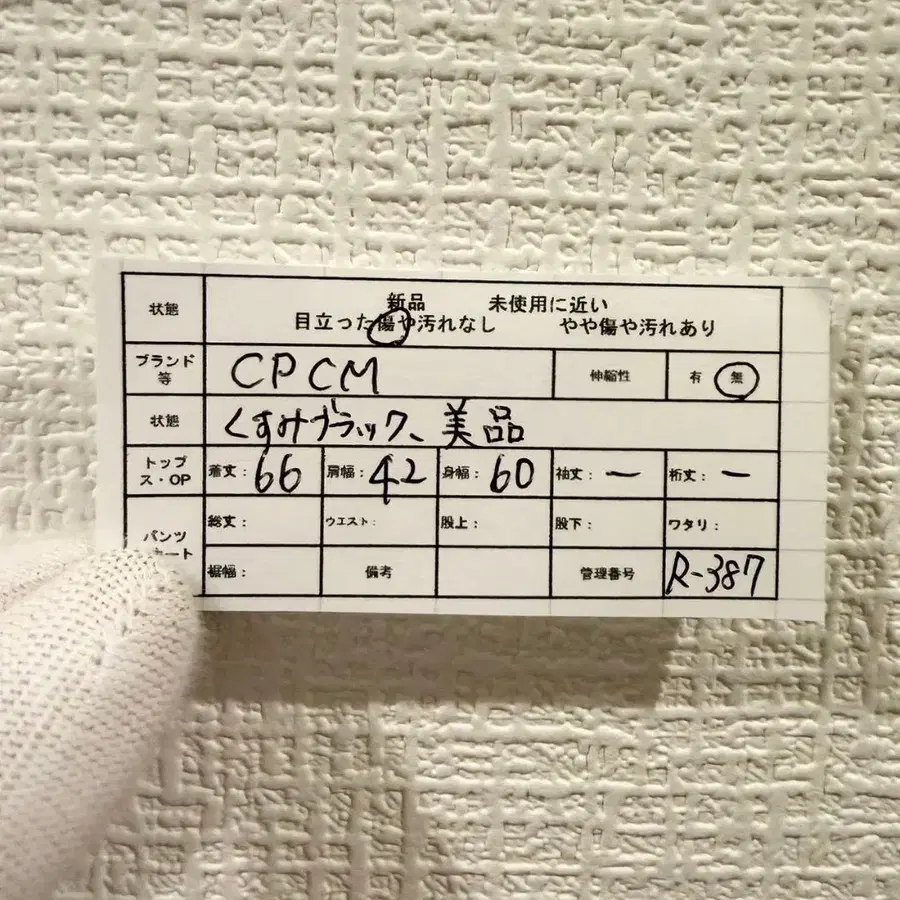 状態
新品 未使用に近い
目立った傷や汚れなし やや傷や汚れあり
ブランド等 CPCM 伸縮性 有 無
状態 くすみブラック、美品
トップス・OP 着丈:66 肩幅:42 身幅:60 袖丈:ー 裄丈:ー
パンツ 総丈: ウエスト: 股上: 股下: ワタリ:
ート 裾幅: 備考 管理番号 R-387